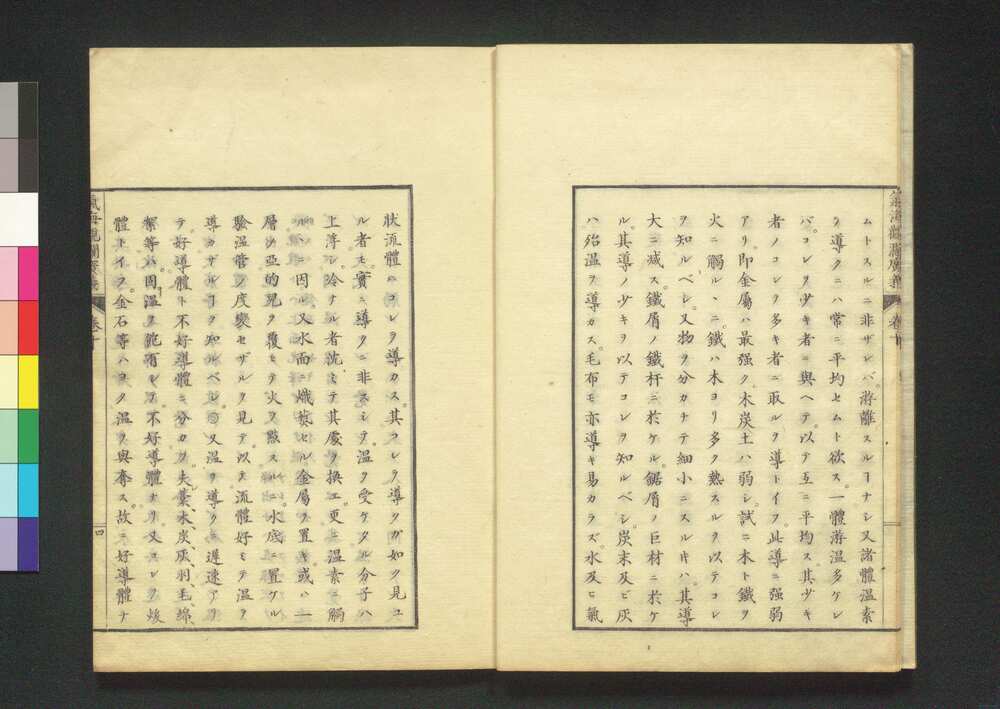 ムトスルニ非ザレバ游離スルヿナシ又諸體温素
ヲ導クニハ常ニ平均セムト欲ス。一體游温多ケレ
バ。コレヲ少キ者ニ與ヘテ。以テ互ニ平均ス其少キ
者ノコレヲ多キ者ニ取ルヲ導トイフ。此導ニ強弱
アリ即金屬ハ最强ク。木炭土ハ弱シ試ニ木ト鐵ヲ
火ニ觸ルヽニ。鐵ハ木ヨリ多ク熱スルヲ以テコレ
ヲ知ルベシ。又物ヲ分カチテ細小ニスルキハ。其導
大ニ减ス。鐵屑ノ鐵杆ニ於ケル。鋸屑ノ巨材ニ於ケ
ル。其導ノ少キヲ以テコレヲ知ルベシ。炭末及ビ灰
ハ殆温ヲ導カス。毛布モ亦導キ易カラズ。水及ヒ氣
氣海觀瀾廣義
卷十
狀流體ハコレヲ導カス。其コレヲ導クガ如ク見ユ
ル者モ。實ニ導クニ非スシテ。温ヲ受ケタル分子ハ
上浮シ。冷ナル者沈ミテ其處ヲ換エ。更ニ温素ニ觸
ルヽニ因ル又水面ニ熾熱セル金屬ヲ置キ或ハ一
層ノ亞的兒ヲ覆ヒテ火ヲ點スルニ。水底ニ置ケル
驗温管ノ度變セザルヲ見テ。以テ流體好ミテ温ヲ
導カザルヿヲ知ルベシ。○又温ヲ導クニ遲速アリ
テ好導體ト不好導體ニ分カツ。夫藁、木炭、灰、羽、毛、綿、
絮等ハ。固温ヲ
不好導體ナリ又コレヲ煖
體トイフ。金石等ハヨク温ヲ與奪ス故ニ好導體ナ
氣海觀瀾廣義
卷十
四